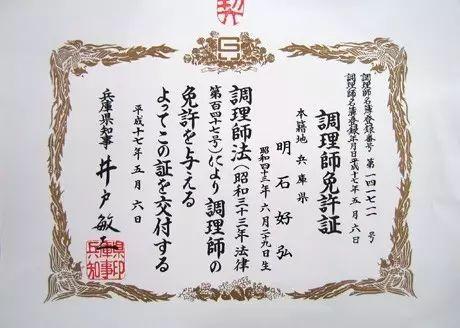 調理師名簿登録番号 第一四一七二一号
調理師名簿登録年月日平成十七年五月六日
調理師免許証
本籍地 兵庫県
明石好弘
昭和四十三年六月二十九日生
調理師法(昭和三十三年法律
第百四十七号)により調理師の
免許を与える
よってこの証を交付する
平成十七年五月六日
兵庫県知事 井戸敏三
兵庫県知事印